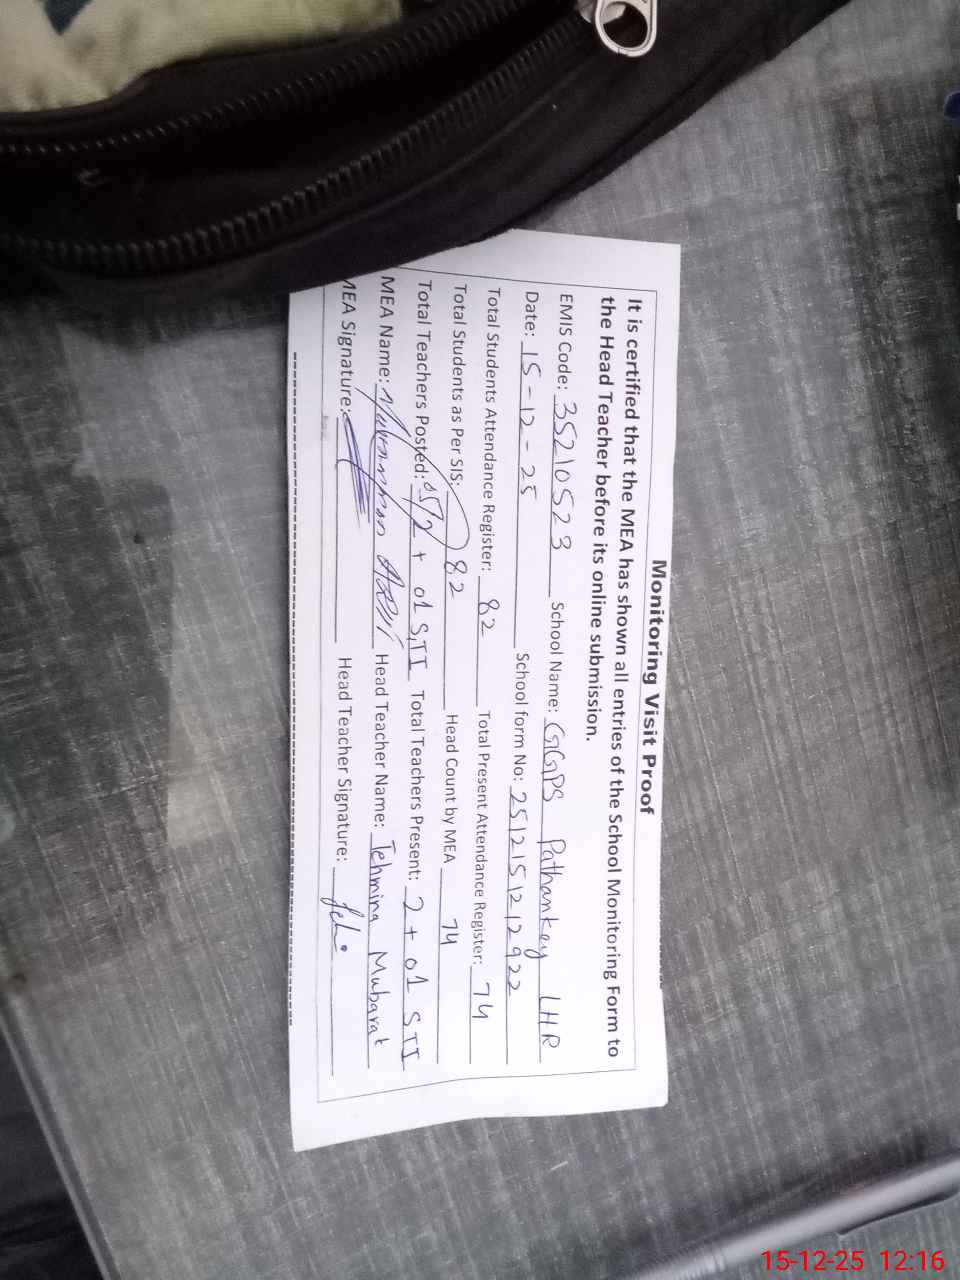 Monitoring Visit Proof
It is certified that the MEA has shown all entries of the School Monitoring Form to
the Head Teacher before its online submission.
EMIS Code: 35210523 School Name: GGPS Pathankey LHR
Date: 15-12-25 School form No: 2512151212922
Total Students Attendance Register: 82 Total Present Attendance Register: 74
Total Students as Per SIS: 82 Head Count by MEA 74
Total Teachers Posted: 2 + 01 STI Total Teachers Present: 2 + 01 STI
MEA Name: Head Teacher Name: Tehmina Mubarat
MEA Signature: Head Teacher Signature:
15-12-25 12:16